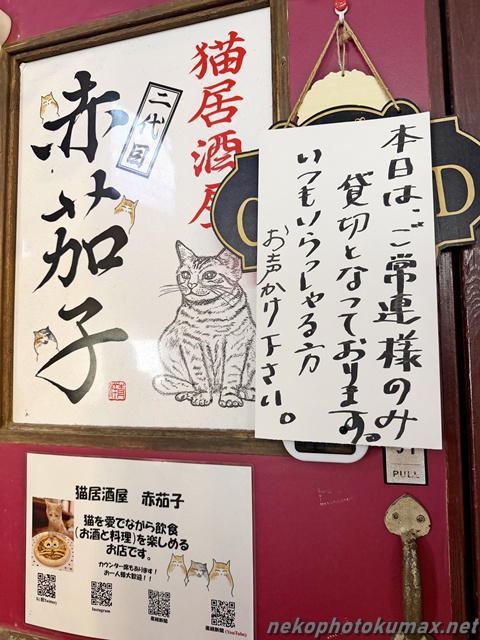 猫居酒屋
二代目
赤茄子
本日は、ご常連様のみ
貸切となっております。
いつもいらっしゃる方
お声かけ下さい。
D
PULL
猫居酒屋 赤茄子
猫を愛でながら飲食
(お酒と料理)を楽しめる
お店です。
カウンター席もあります!
お一人様大歓迎!!
X(旧Twitter)
Instagram
産経新聞
産経新聞(YouTube)
nekophotokumax.net